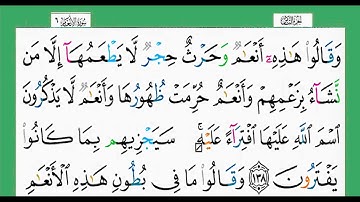 سورة الأنعام ٦
الجزء الثامن
وَقَالُوا۟ هَـٰذِهِۦٓ أَنْعَـٰمٌ وَحَرْثٌ حِجْرٌ لَّا يَطْعَمُهَآ إِلَّا مَن
نَّشَآءُ بِزَعْمِهِمْ وَأَنْعَـٰمٌ حُرِّمَتْ ظُهُورُهَا وَأَنْعَـٰمٌ لَّا يَذْكُرُونَ
ٱسْمَ ٱللَّهِ عَلَيْهَا ٱفْتِرَآءً عَلَيْهِ ۚ سَيَجْزِيهِم بِمَا كَانُوا۟
يَفْتَرُونَ ١٣٨ وَقَالُوا۟ مَا فِى بُطُونِ هَـٰذِهِ ٱلْأَنْعَـٰمِ